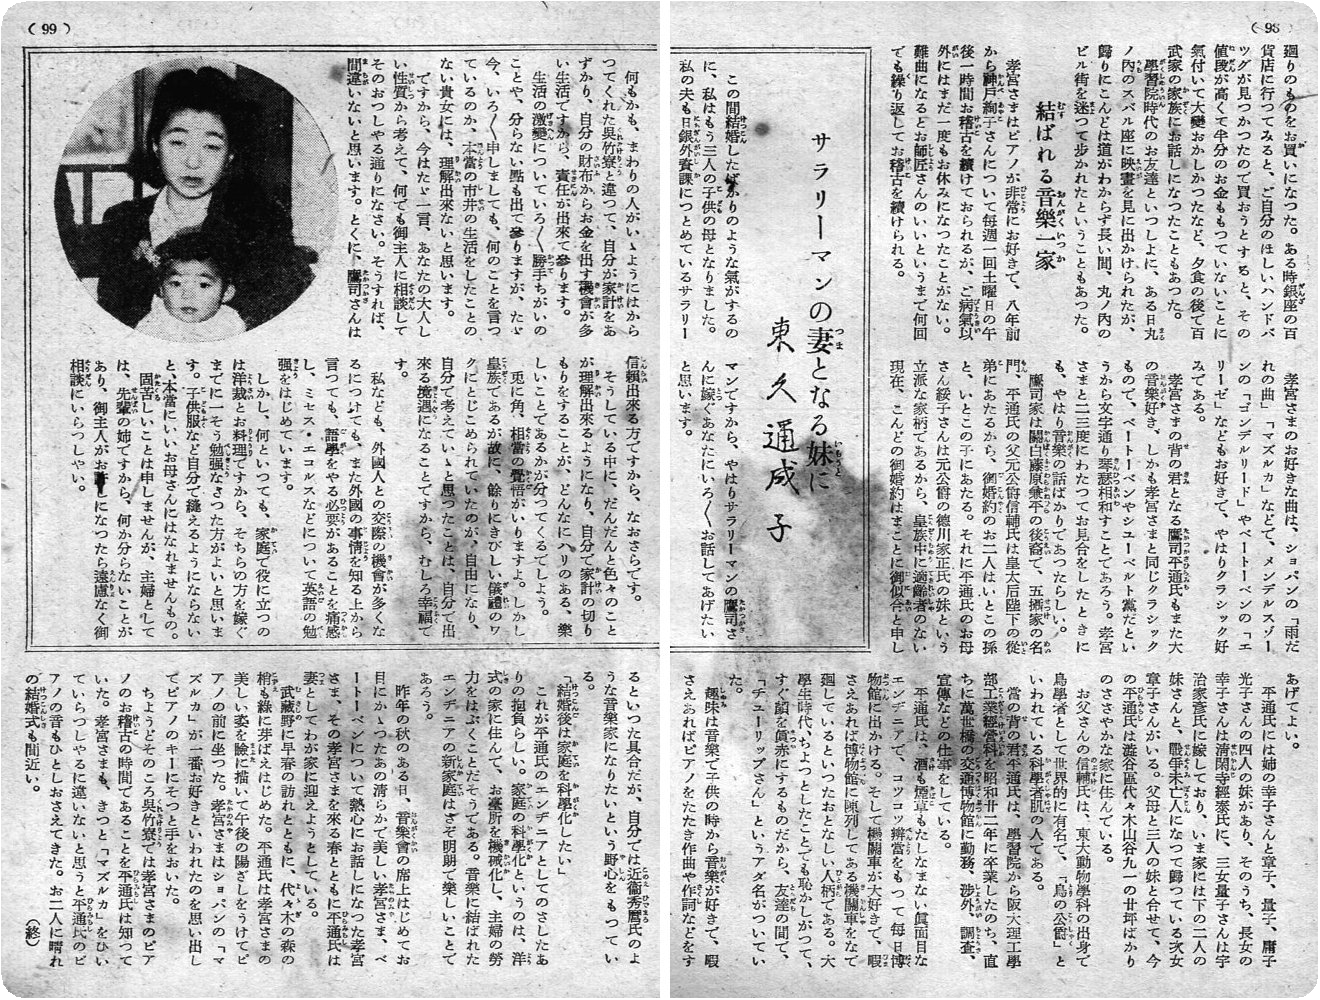 (98)
廻りのものをお買いになつた。ある時銀座の百
貨店に行つてみると、ご自分のほしいハンドバ
ツグが見つかつたので買おうとすると、その
値段が高くて半分のお金ももつていないことに
氣付いて大變おかしかつたなど、夕食の後で百
武家の家族にお話しになつたこともあつた。
學習院時代のお友達といつしよに、ある日丸
ノ内のスバル座に映畫を見に出かけられたが、
歸りにこんどは道がわからず長い間、丸ノ内の
ビル街を迷つて歩かれたということもあつた。
結ばれる音樂一家
孝宮さまはピアノが非常にお好きで、八年前
から神戸絢子さんについて毎週一回土曜日の午
後一時間お稽古を續けておられるが、ご病氣以
外にはまだ一度もお休みになつたことがない。
難曲になるとお師匠さんのいいというまで何回
でも繰り返してお稽古を續けられる。
孝宮さまのお好きな曲は、ショパンの「雨だ
れの曲」「マズルカ」などで、メンデルスゾー
ンの「ゴンデルリード」やベートーベンの「エ
リーゼ」などもお好きで、やはりクラシック好
みである。
孝宮さまの背の君となる鷹司平通氏もまた大
の音樂好き、しかも孝宮さまと同じクラシック
もので、ベートーベンやシユーベルト黨だとい
うから文字通り琴瑟相和すことであろう。孝宮
さまと二三度にわたつてお見合をしたときに
も、やはり音樂の話ばかりであつたらしい。
鷹司家は關白藤原兼平の後裔で、五攝家の名
門、平通氏の父元公爵信輔氏は皇太后陛下の從
弟にあたるから、御婚約のお二人はいとこの孫
と、いとこの子にあたる。それに平通氏のお母
さん綏子さんは元公爵の德川家正氏の妹という
立派な家柄であるから、皇族中に適齡者のない
現在、こんどの御婚約はまことに御似合と申し
あげてよい。
平通氏には姉の幸子さんと章子、量子、庸子
光子さんの四人の妹があり、そのうち、長女の
幸子さんは清閑寺經泰氏に、三女量子さんは宇
治家彥氏に嫁しており、いま家には下の二人の
妹さんと、戰爭未亡人になつて歸つている次女
章子さんがいる。父母と三人の妹と合せて、今
の平通氏は澁谷區代々木山谷九一の廿坪ばかり
のささやかな家に住んでいる。
お父さんの信輔氏は、東大動物學科の出身で
鳥學者として世界的に有名で、「鳥の公爵」と
いわれている科學者肌の人である。
當の背の君平通氏は、學習院から阪大理工學
部工業經營科を昭和廿二年に卒業したのち、直
ちに萬世橋の交通博物館に勤務、涉外、調査、
宣傳などの仕事をしている。
平通氏は、酒も煙草もたしなまない眞面目な
エンヂニアで、コツコツ辨當をもつて每日博
物館に出かける。そして機關車が大好きで、暇
さえあれば博物館に陳列してある機關車をなで
廻しているといつたおとなしい人柄である。大
學生時代、ちよつとしたことでも恥かしがつて、
すぐ顏を眞赤にするものだから、友達の間で、
「チューリップさん」というアダ名がついてい
た。
趣味は音樂で子供の時から音樂が好きで、暇
さえあればピアノをたたき作曲や作詞などをす
サラリーマンの妻となる妹に
東久邇成子
この間結婚したばかりのような氣がするの
に、私はもう三人の子供の母となりました。
私の夫も日銀外資課につとめているサラリー
マンですから、やはりサラリーマンの鷹司さ
んに嫁ぐあなたにいろ〱お話してあげたい
と思います。
(99)
何もかも、まわりの人がいゝようにはから
つてくれた呉竹寮と違つて、自分が家計をあ
ずかり、自分の財布からお金を出す機會が多
い生活ですから、責任が出來て參ります。
生活の激變についていろ〱勝手ちがいの
ことや、分らない點も出て參りますが、たゞ
今、いろ〱申しましても、何のことを言つ
ているのか、本當の市井の生活をしたことの
ない貴女には、理解出來ないと思います。
ですから、今はたゞ一言、あなたの大人し
い性質から考えて、何でも御主人に相談して
そのおつしやる通りになさい。そうすれば、
間違いないと思います。とくに、鷹司さんは
信賴出來る方ですから、なおさらです。
そうしている中に、だんだんと色々のこと
が理解出來るようになり、自分で家計の切り
もりをすることが、どんなにハリのある、樂
しいことであるかが分つてくるでしよう。
兎に角、相當の覺悟がいりますよ。しかし
皇族であるが故に、餘りにきびしい儀禮のワ
クにとじこめられていたのが、自由になり、
自分で考えていゝと思つたことは、自分で出
來る境遇になることですから、むしろ幸福で
す。
私なども、外國人との交際の機會が多くな
るにつけても、また外國の事情を知る上から
言つても、語學をやる必要があることを痛感
し、ミセス・エコルスなどについて英語の勉
强をはじめています。
しかし、何といつても、家庭で役に立つの
は洋裁とお料理ですから、そちらの方を嫁ぐ
までに一そう勉强なさつた方がよいと思いま
す。子供服など自分で縫えるようにならない
と、本當にいゝお母さんにはなれませんもの。
固苦しいことは申しませんが、主婦として
は、先輩の姉ですから、何か分らないことが
あり、御主人がお許しになつたら遠慮なく御
相談にいらつしやい。
るといつた具合だが、自分では近衞秀麿氏のよ
うな音樂家になりたいという野心をもつてい
る。
「結婚後は家庭を科學化したい」
これが平通氏のエンヂニアとしてのさしたあ
りの抱負らしい。家庭の科學化というのは、洋
式の家に住んで、お臺所を機械化し、主婦の勞
力をはぶくことだそうである。音樂に結ばれた
エンヂニアの新家庭はさぞ明朗で樂しいことで
あろう。
昨年の秋のある日、音樂會の席上はじめてお
目にかゝつたあの清らかで美しい孝宮さま、ベ
ートーベンについて熱心にお話しになつた孝宮
さま、その孝宮さまを來る春とともに平通氏は
妻としてわが家に迎えようとしている。
武藏野に早春の訪れとともに、代々木の森の
梢も綠に芽ばえはじめた。平通氏は孝宮さまの
美しい姿を瞼に描いて午後の陽ざしをうけてピ
アノの前に坐つた。孝宮さまはショパンの「マ
ズルカ」が一番お好きといわれたのを思い出し
てピアノのキーにそつと手をおいた。
ちようどそのころ呉竹寮では孝宮さまのピア
ノのお稽古の時間であることを平通氏は知つて
いた。孝宮さまも、きつと「マズルカ」をひい
ていらつしやるに違いないと思うと平通氏のピ
アノの音もひとしおさえてきた。お二人に晴れ
の結婚式も間近い。
(終)